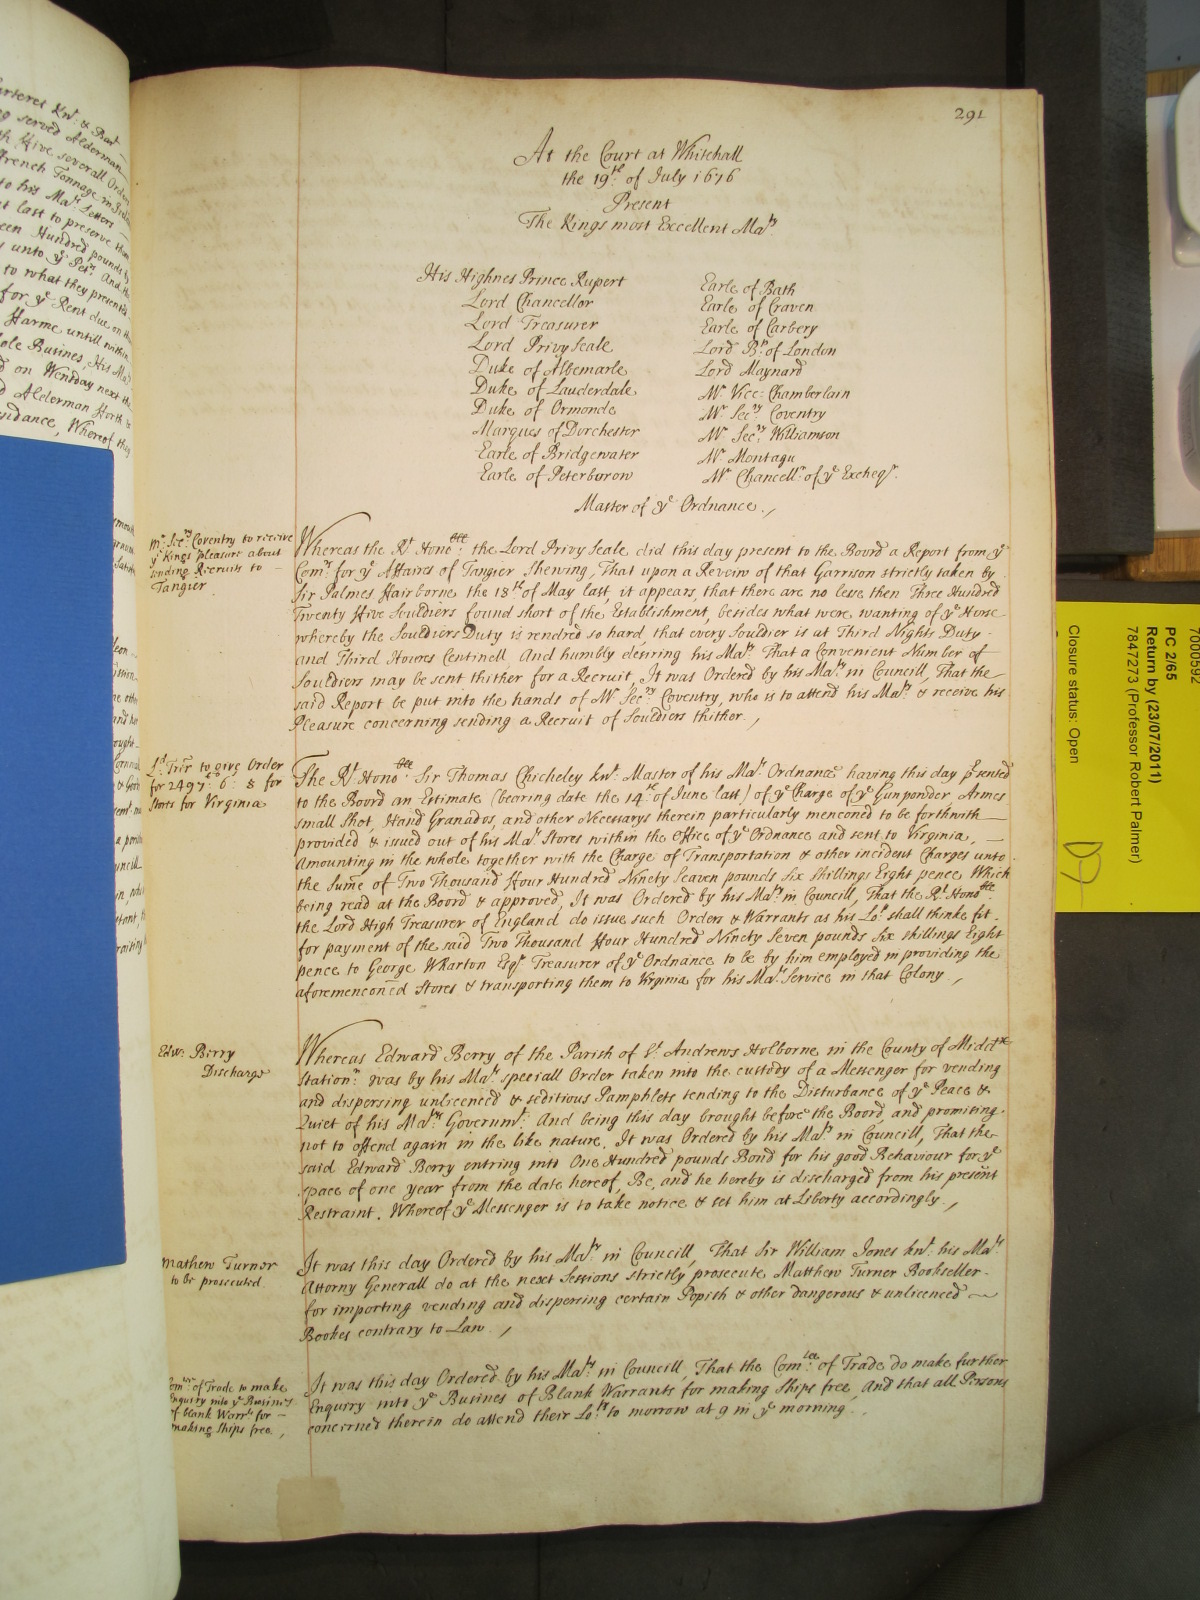 291
At the Court at Whitehall
the 19th of July 1676
Present
The Kings most Excellent Maty
His Highnes Prince Rupert
Lord Chancellor
Lord Treasurer
Lord Privy Seale
Duke of Albemarle
Duke of Lauderdale
Duke of Ormonde
Marques of Dorchester
Earle of Bridgewater
Earle of Peterborow
Earle of Bath
Earle of Craven
Earle of Carbery
Lord Bp of London
Lord Maynard
Mr Vice-Chamberlain
Mr Secry Coventry
Mr Secry Williamson
Mr Montagu
Mr Chancellr of ye Excheqr.
Master of ye Ordnance.,
Mr Secry Coventry to receive
ye Kings pleasure about
sending Recruits to
Tangier
Whereas the Rt Honoble the Lord Privy Seale did this day present to the Board a Report from ye
Comrs for ye Affaires of Tangier Shewing, That upon a Reveiw of that Garrison strictly taken by
Sir Palmes Fairborne the 18th of May last, it appears, that there are no lesse then Three Hundred
Twenty Five Souldiers found short of the Establishment, besides what were wanting of ye Horse
whereby the Souldiers Duty is rendred so hard, that every Souldier is at Third Nights Duty
and Third Houres Centinell, And humbly desiring his Maty That a Convenient Number of
Souldiers may be sent thither for a Recruit, It was Ordered by his Maty in Councill, That the
said Report be put into the hands of Mr Secry Coventry, who is to attend his Maty & receive his
Pleasure concerning sending a Recruit of Souldiers thither.,
Ld Trer to give Order
for 2497 li 6: 8 for
Stors for Virginia
The Rt Honoble Sir Thomas Chicheley knt Master of his Mats Ordnance having this day prsented
to the Board an Estimate (bearing date the 14th of June last) of ye Charge of ye Gunpouder Armes
small shot, Hand Granados, and other Necessarys therein particularly menconed to be forthwith
provided & issued out of his Mats Stores within the Office of ye Ordnance and sent to Virginia,
Amounting in the whole together with the Charge of Transportation & other incident Charges unto
the Sume of Two Thousand Four Hundred Ninety Seaven pounds six shillings Eight pence Which
being read at the Board & approved, It was Ordered by his Maty in Councill, That the Rt Honoble
the Lord High Treasurer of England do issue such Orders & Warrants as his Lop shall thinke fit
for payment of the said Two Thousand Four Hundred Ninety Seven pounds six shillings Eight
pence to George Wharton Esqr Treasurer of ye Ordnance to be by him employed in providing the
aforemenconed Stores & transporting them to Virginia for his Mats Service in that Colony.,
Edw: Birry
Discharge
Whereas Edward Berry of the Parish of St Andrews Holborne in the County of Middx
Stationr was by his Mats speciall Order taken into the custody of a Messenger for vending
and dispersing unlicenced & seditious Pamphlets tending to the Disturbance of ye Peace &
Quiet of his Mats Governmt: And being this day brought before the Board and promiting
not to offend again in the like nature. It was Ordered by his Maty in Councill, That the
said Edward Berry entring into One Hundred pounds Bond for his good Behaviour for ye
space of one year from the date hereof, Be, and he hereby is discharged from his present
Restraint. Whereof ye Messenger is to take notice & set him at Liberty accordingly.,
Mathew Turner
to be prosecuted
It was this day Ordered by his Maty in Councill, That Sir William Jones knt his Mats
Attorny Generall do at the next Sessions strictly prosecute Matthew Turner Bookseller
for importing vending and dispersing certain Popish & other dangerous & unlicenced
Bookes contrary to Law.,
Comtee of Trade to make
Enquiry into ye Busines
of blank Warrts for
making Ships free,
It was this day Ordered by his Maty in Councill, That the Comtee of Trade do make further
Enquiry into ye Busines of Blank Warrants for making Ships free, And that all Persons
concerned therein do attend their Lops to morrow at 9 in ye morning.
7000592
PC 2/65
Return by (23/07/2011)
7847273 (Professor Robert Palmer)
Closure status: Open